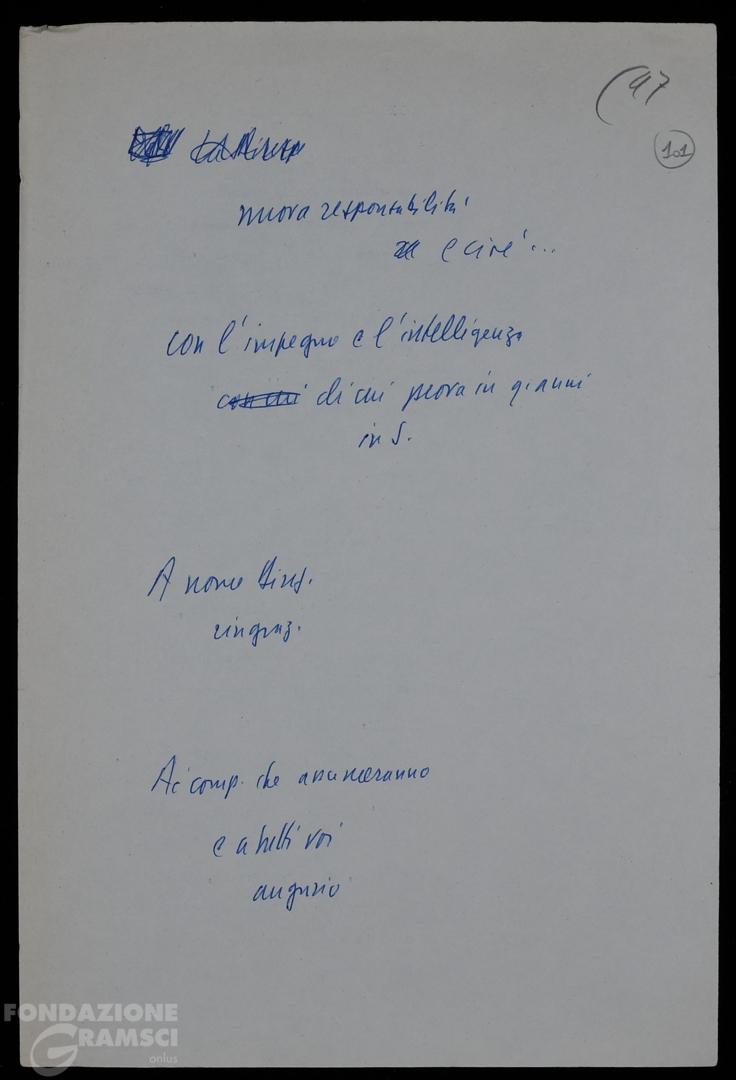 (47
101
nuova responsabilità
e cioè...
con l'impegno e l'intelligenza
con chi di chi prova in gianni
in S.
A nome
ringraz.
Ai comp. che assumeranno
e a tutti voi
augurio
FONDAZIONE
GRAMSCI
onlus